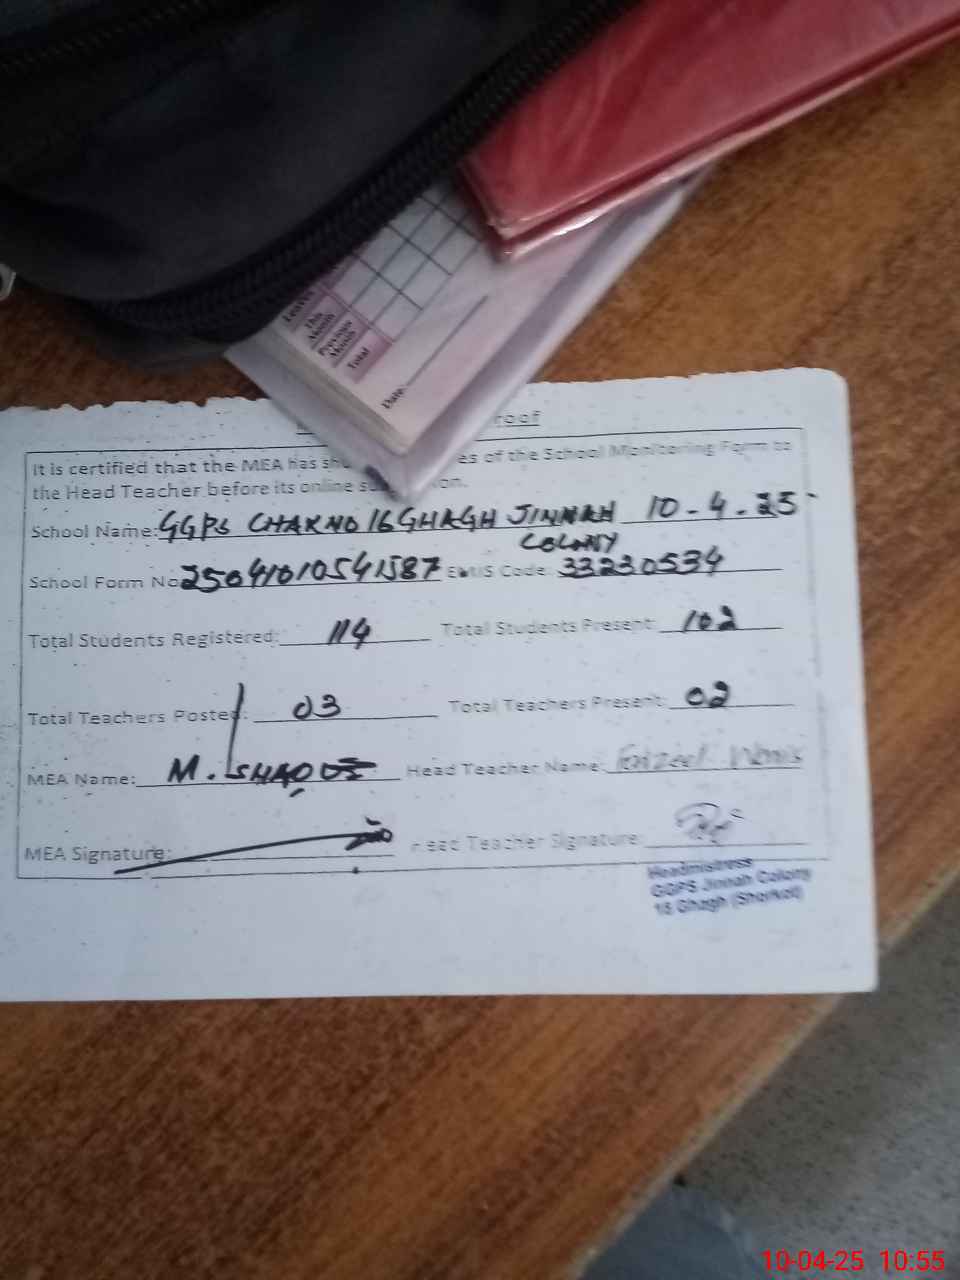 Leaves
This Month
Previous Month
Total
Date:
roof
It is certified that the MEA has sh es of the School Monitoring Form to
the Head Teacher before its online s on.
School Name: GGPS CHAK NO 16 GHAGH JINNAH 10-4-25
COLONY
School Form No 25041010541587 EMIS Code: 33230534
Total Students Registered: 114 Total Students Present: 102
Total Teachers Posted: 03 Total Teachers Present: 02
MEA Name: M. Head Teacher Name:
MEA Signature: Head Teacher Signature:
Headmistress
GGPS Jinnah Colony
16 Ghagh (Shorkot)
10-04-25 10:55